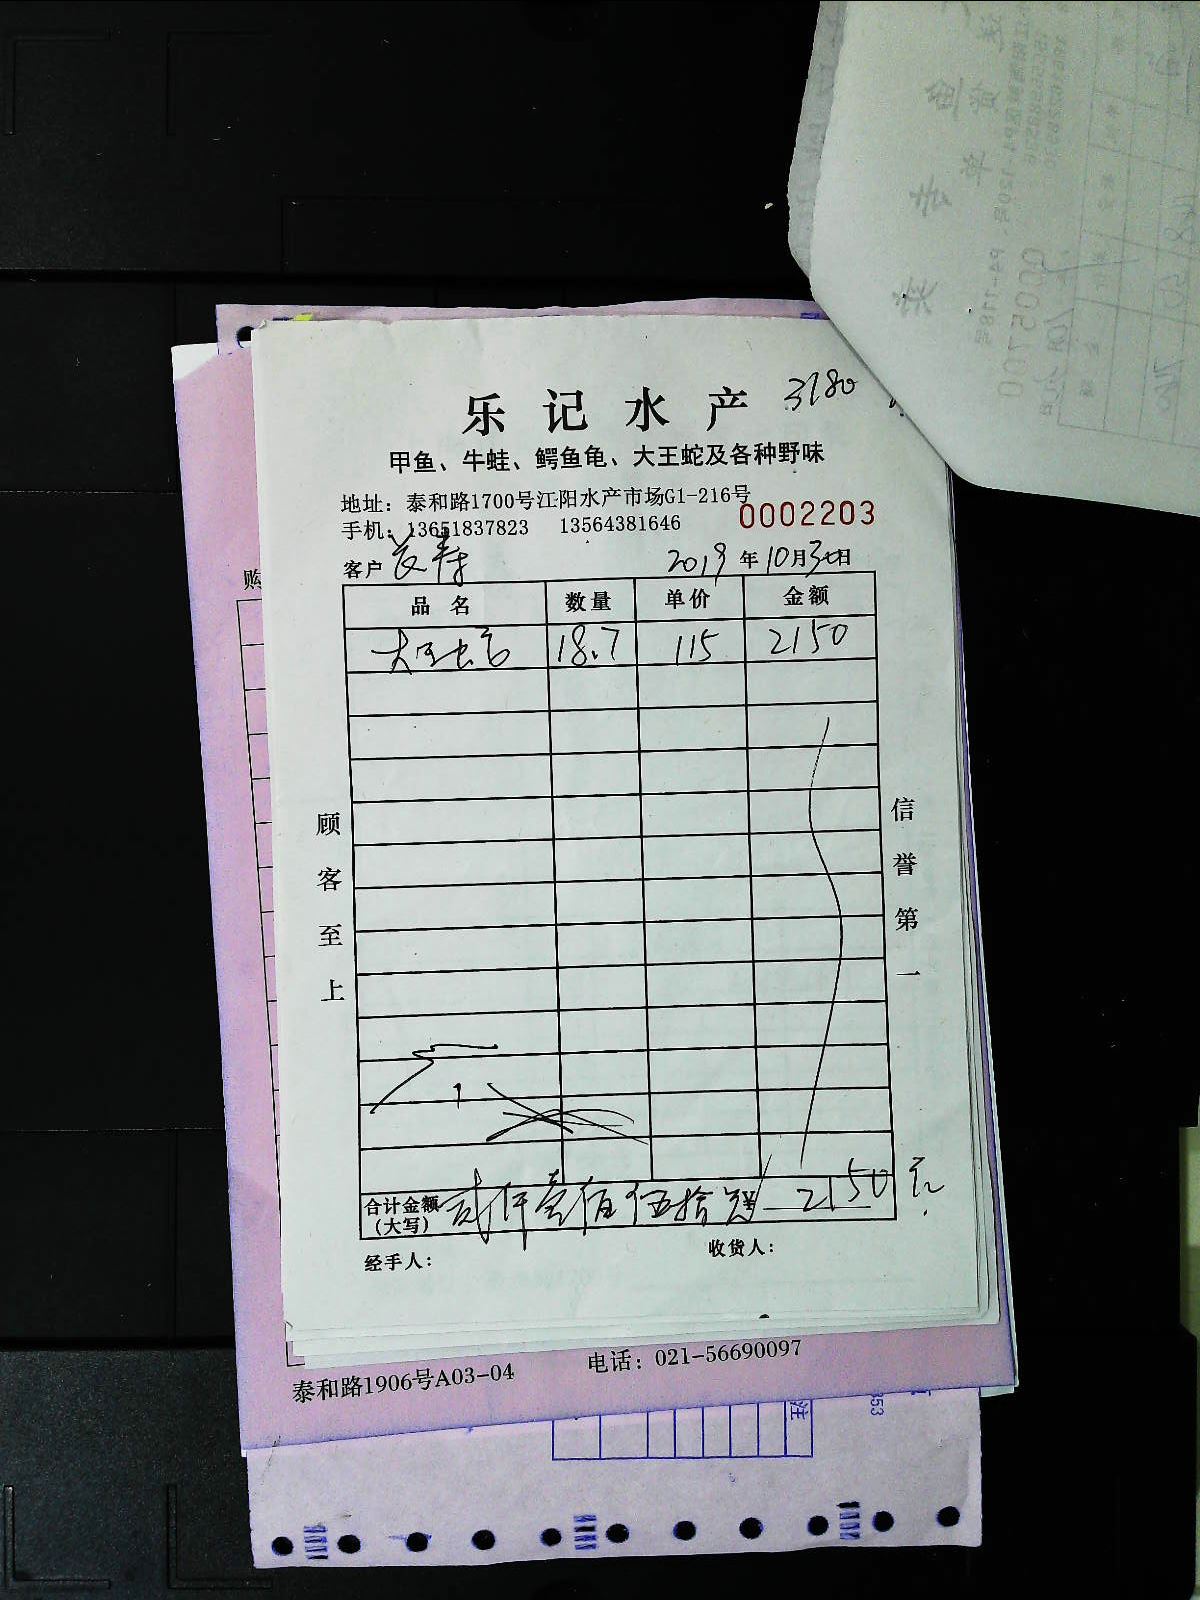 乐记水产 3180
甲鱼、牛蛙、鳄鱼龟、大王蛇及各种野味
地址：泰和路1700号江阳水产市场G1-216号
手机：13651837823 13564381646 0002203
客户 2019年10月30日
品名 数量 单价 金额
大王蛇 18.7 115 2150
顾客至上
信誉第一
合计金额（大写） 贰仟壹佰伍拾 2150元
经手人： 收货人：
购
泰和路1906号A03-04 电话：021-56690097
注
353
0005700